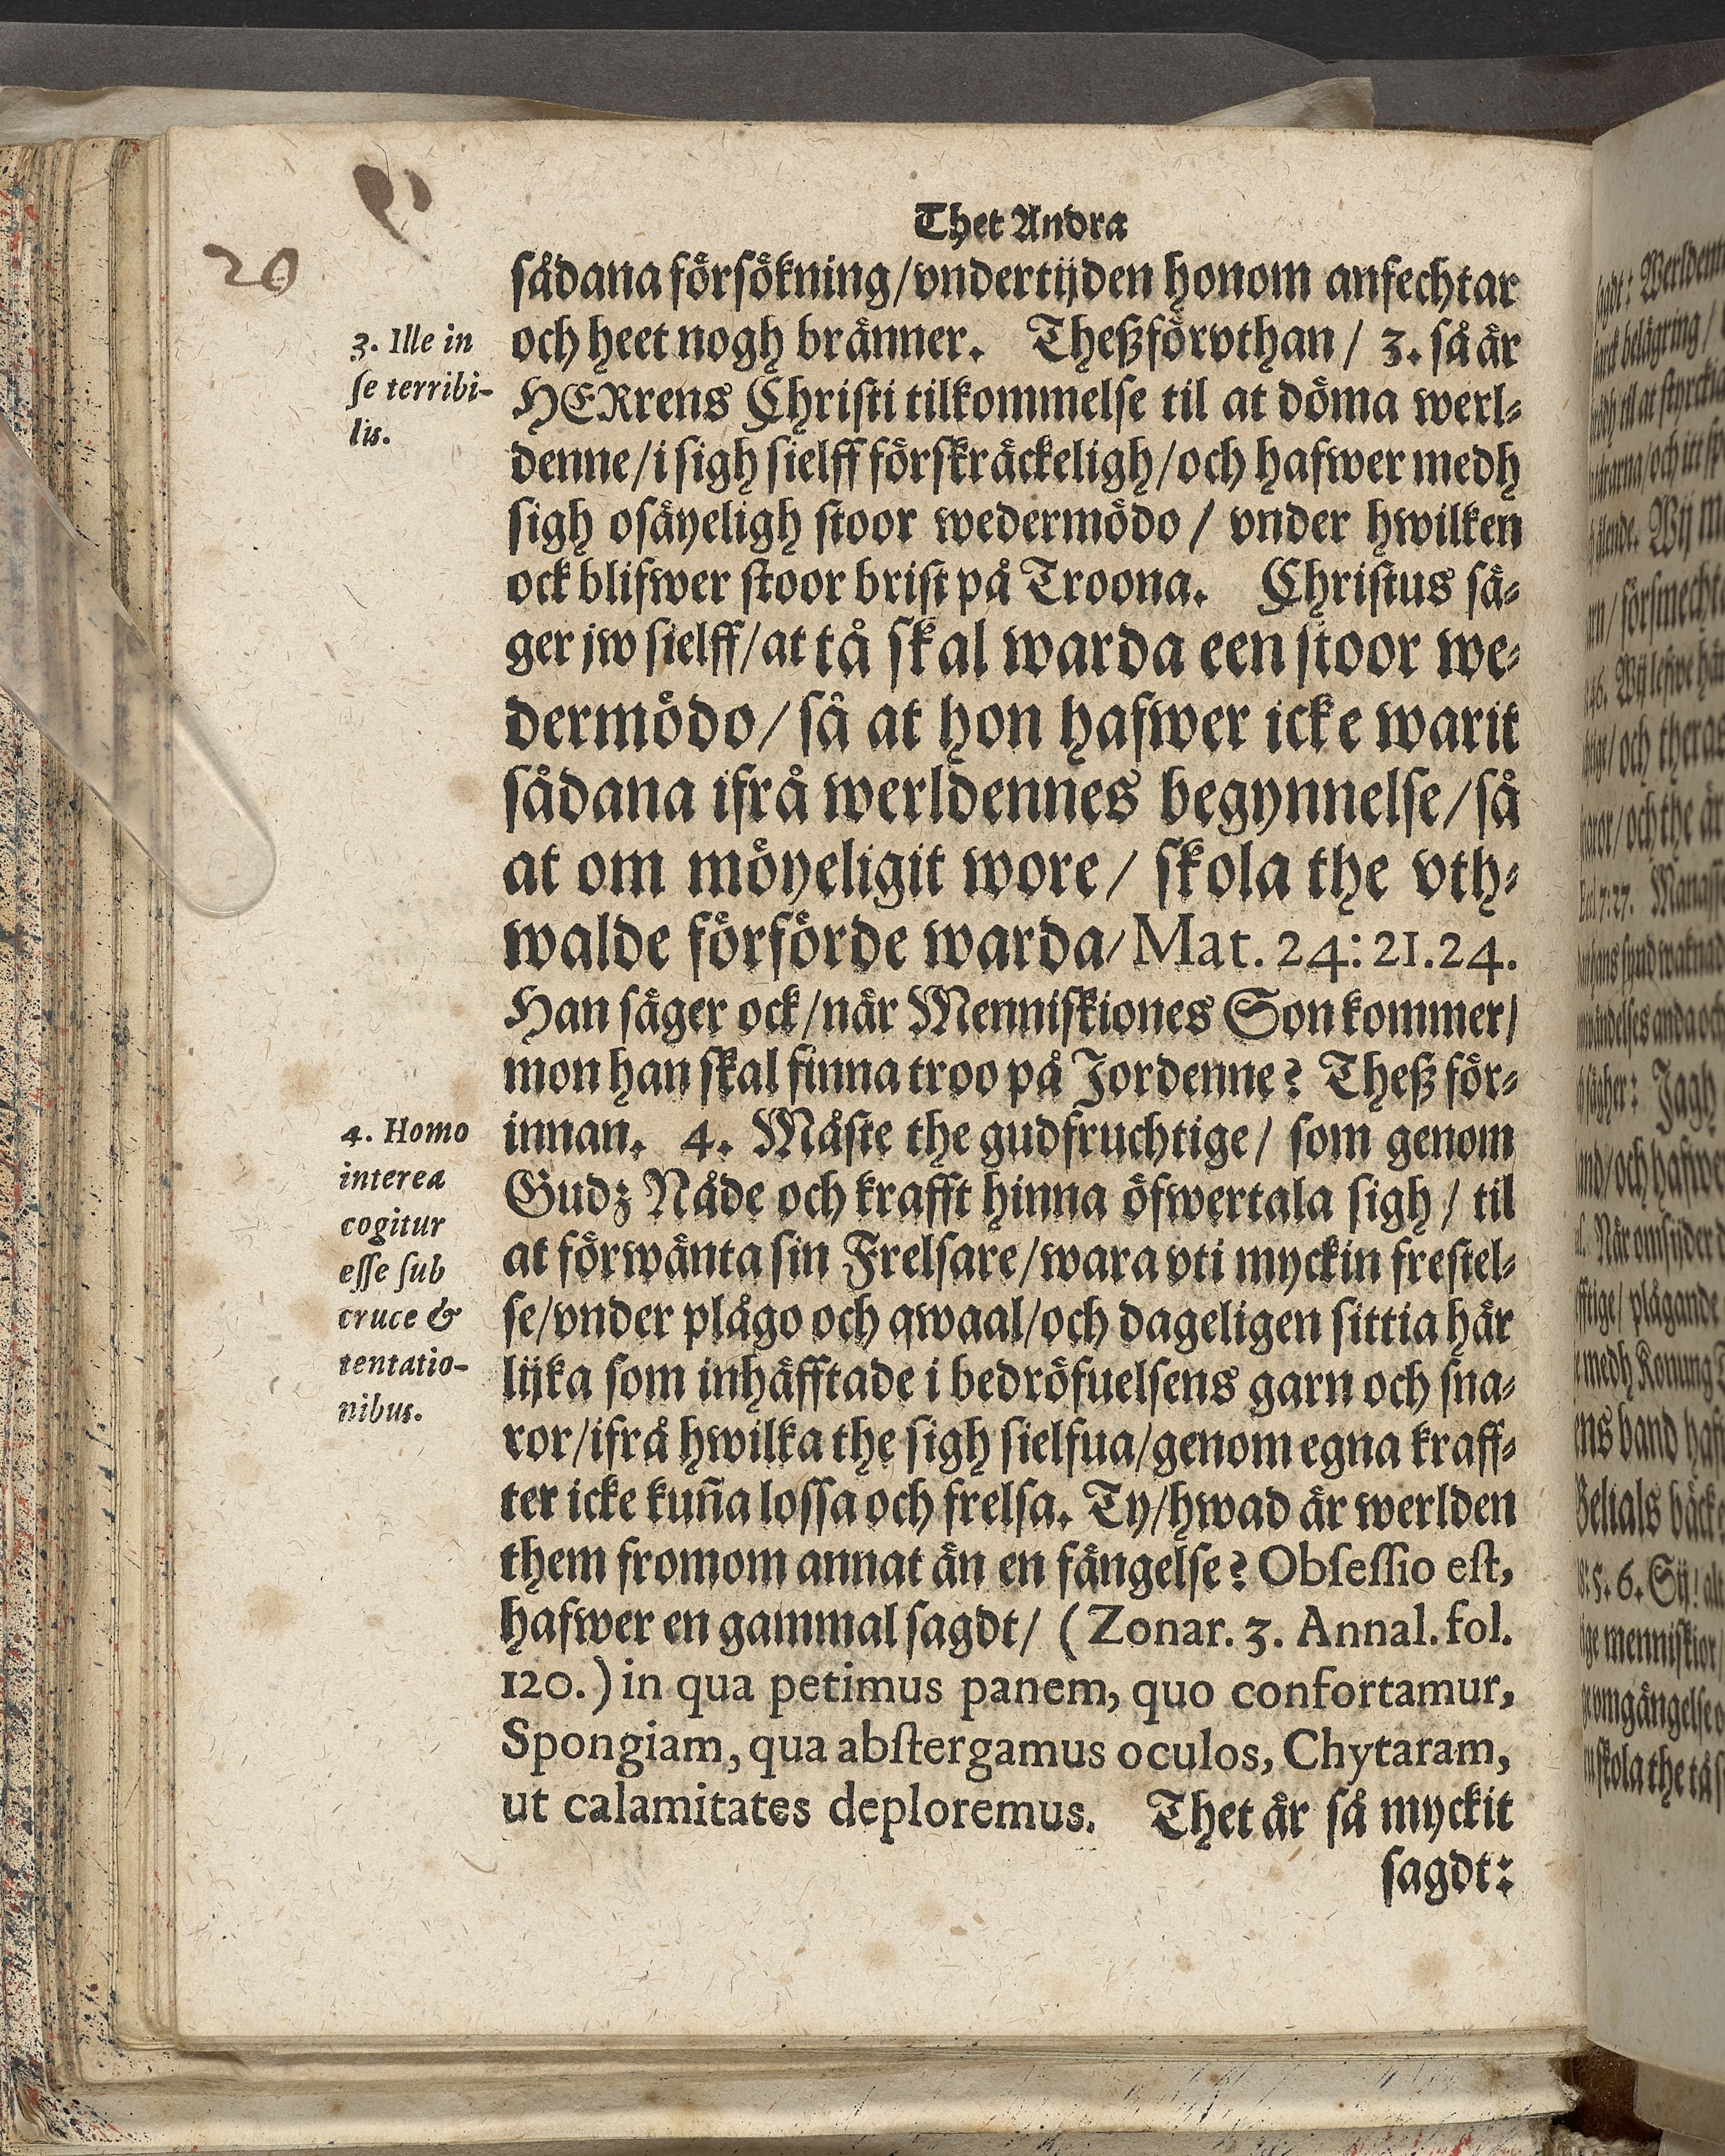 20
Thet Andra
sådana försökning/vndertijden honom anfechtar
3. Ille in
se terribi-
lis.
och heet nogh bränner. Theßförvthan/ 3. så är
HERrens Christi tilkommelse til at döma werl-
denne/i sigh sielff förskräckeligh/och hafwer medh
sigh osäyeligh stoor wedermödo/ vnder hwilken
ock blifwer stoor brist på Troona. Christus sä-
ger jw sielff/at tå skal warda een stoor we-
dermödo/så at hon hafwer icke warit
sådana ifrå werldennes begynnelse/så
at om möyeligit wore/ skola the vth-
walde förförde warda/Mat. 24:21.24.
Han säger ock/när Menniskiones Son kommer/
mon han skal finna troo på Jordenne? Theß för-
4. Homo
interea
cogitur
esse sub
cruce &
tentatio-
nibus.
innan. 4. Måste the gudfruchtige/ som genom
Gudz Nåde och krafft hinna öfwertala sigh/ til
at förwänta sin Frelsare/wara vti myckin frestel-
se/vnder plågo och qwaal/och dageligen sittia här
lijka som inhäfftade i bedröfuelsens garn och sna-
ror/ifrå hwilka the sigh sielfua/genom egna kraff-
ter icke kuña lossa och frelsa. Ty/hwad är werlden
them fromom annat än en fängelse? Obsessio est,
hafwer en gammal sagdt/ (Zonar. 3. Annal. fol.
120.) in qua petimus panem, quo confortamur,
Spongiam, qua abstergamus oculos, Chytaram,
ut calamitates deploremus. Thet är så myckit
sagdt: